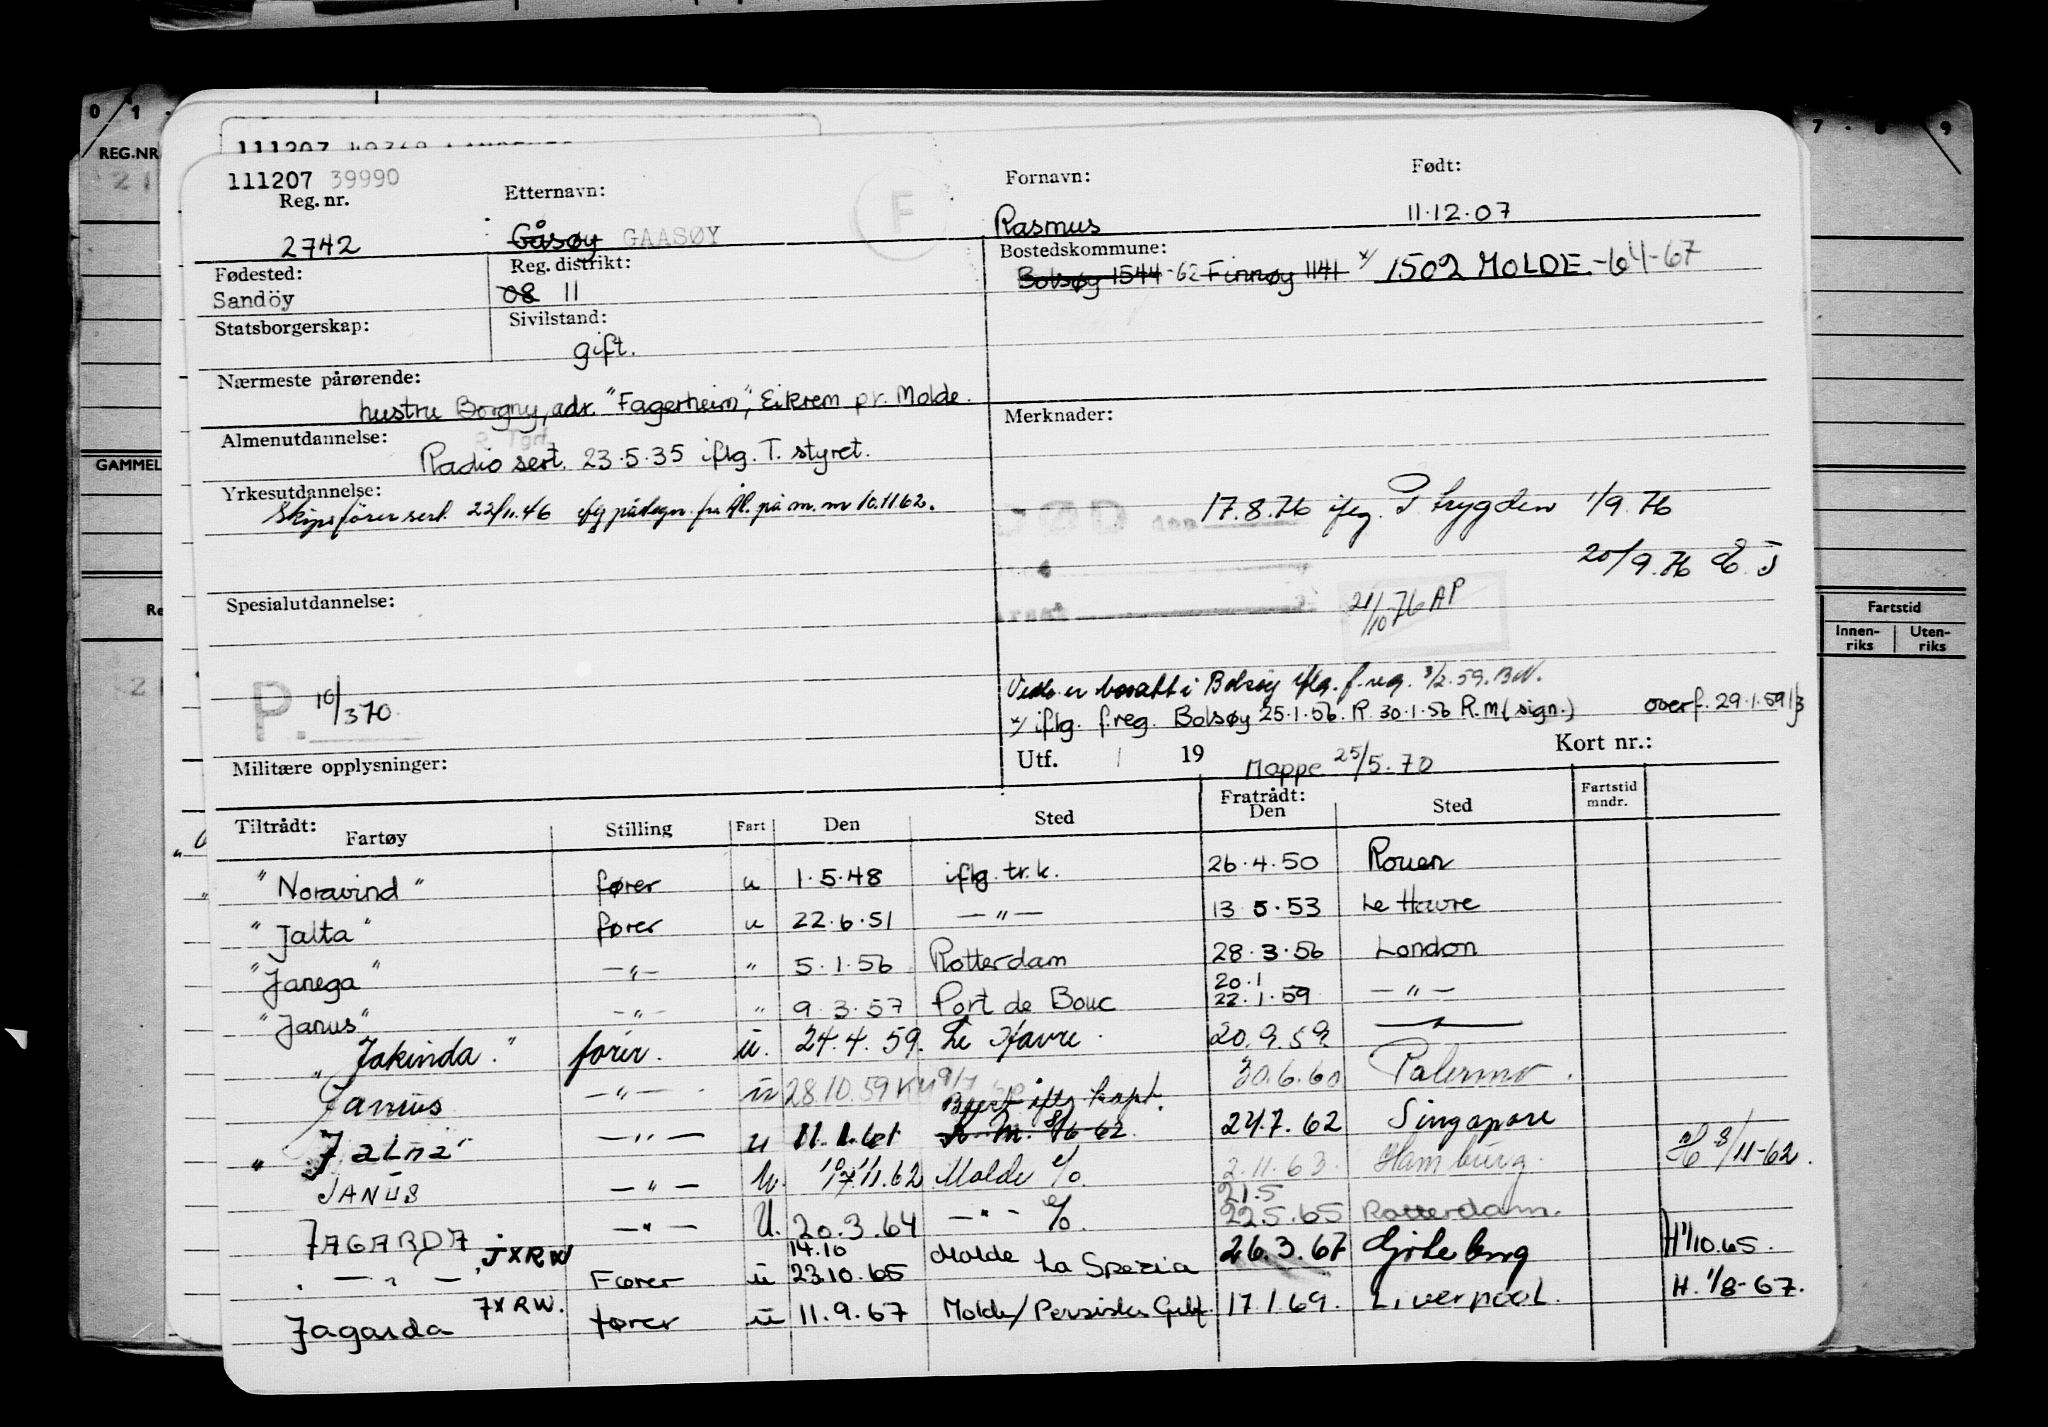 0 1
7 - 8 - 9
REG.NR
21
GAMMEL
Re
Fartstid
Innen-
riks
Uten-
riks
111207
111207 39990
Reg. nr.
Etternavn:
Fornavn:
Født:
F
2742
Gåsøy GAASØY
Rasmus
11.12.07
Fødested:
Reg. distrikt:
Bostedskommune:
Sandöy
08 11
Bolsøy 1544 -62 Finnøy 1141 x/ 1502 MOLDE -64-67
Statsborgerskap:
Sivilstand:
gift.
Nærmeste pårørende:
hustru Borgny, adr. "Fagerheim", Eikrem pr. Molde.
Merknader:
Almenutdannelse:
R. Tgrf.
Radio sert. 23.5.35 iflg. T. styret.
Yrkesutdannelse:
Skipsførersert. 22/11.46 på m.m 10.11.62.
DØD den 17.8.76 iflg. P. trygden 1/9.76
20/9.76
Spesialutdannelse:
21/10 76 AP
P. 10/370
Vedk. er bosatt i Bolsøy iflg. f.reg. 3/2.59. BN.
x/ iflg. f.reg. Bolsøy 25.1.56. R. 30.1.56 R.m (sign.) overf. 29.1.59
Militære opplysninger:
Utf. / 19
Mappe 25/5.70
Kort nr.:
Tiltrådt:
Fartøy
Stilling
Fart
Den
Sted
Fratrådt:
Den
Sted
Fartstid
mndr.
"Noravind" fører u 1.5.48 iflg. tr.k. 26.4.50 Rouen
"Jalta" fører u 22.6.51 — " — 13.5.53 Le Havre
"Janega" — " — " 5.1.56 Rotterdam 28.3.56 London
"Janus" — " — " 9.3.57 Port de Bouc 20.1 22.1.59 — " —
"Jakinda." fører. u. 24.4.59. Le Havre. 20.9.59 — " —
Janus — " — u 28.10.59 30.6.60 Palermo.
"Jalna" — " — u 11.1.61 iflg. kapt. 8/6-62 24.7.62 Singapore
JANUS — " — u. 17.11.62 Molde e/o 2.11.63. Hamburg. H 8/11-62.
JAGARDA — " — U. 20.3.64 — " — e/o. 21.5 22.5.65 Rotterdam.
— " — JXRW Fører u 14.10 23.10.65 Molde La Spezia 26.3.67 Göteborg H 1/10.65.
Jagarda JXRW. fører u 11.9.67 Molde/Persiske Gulf. 17.1.69. Liverpool. H. 1/8-67.